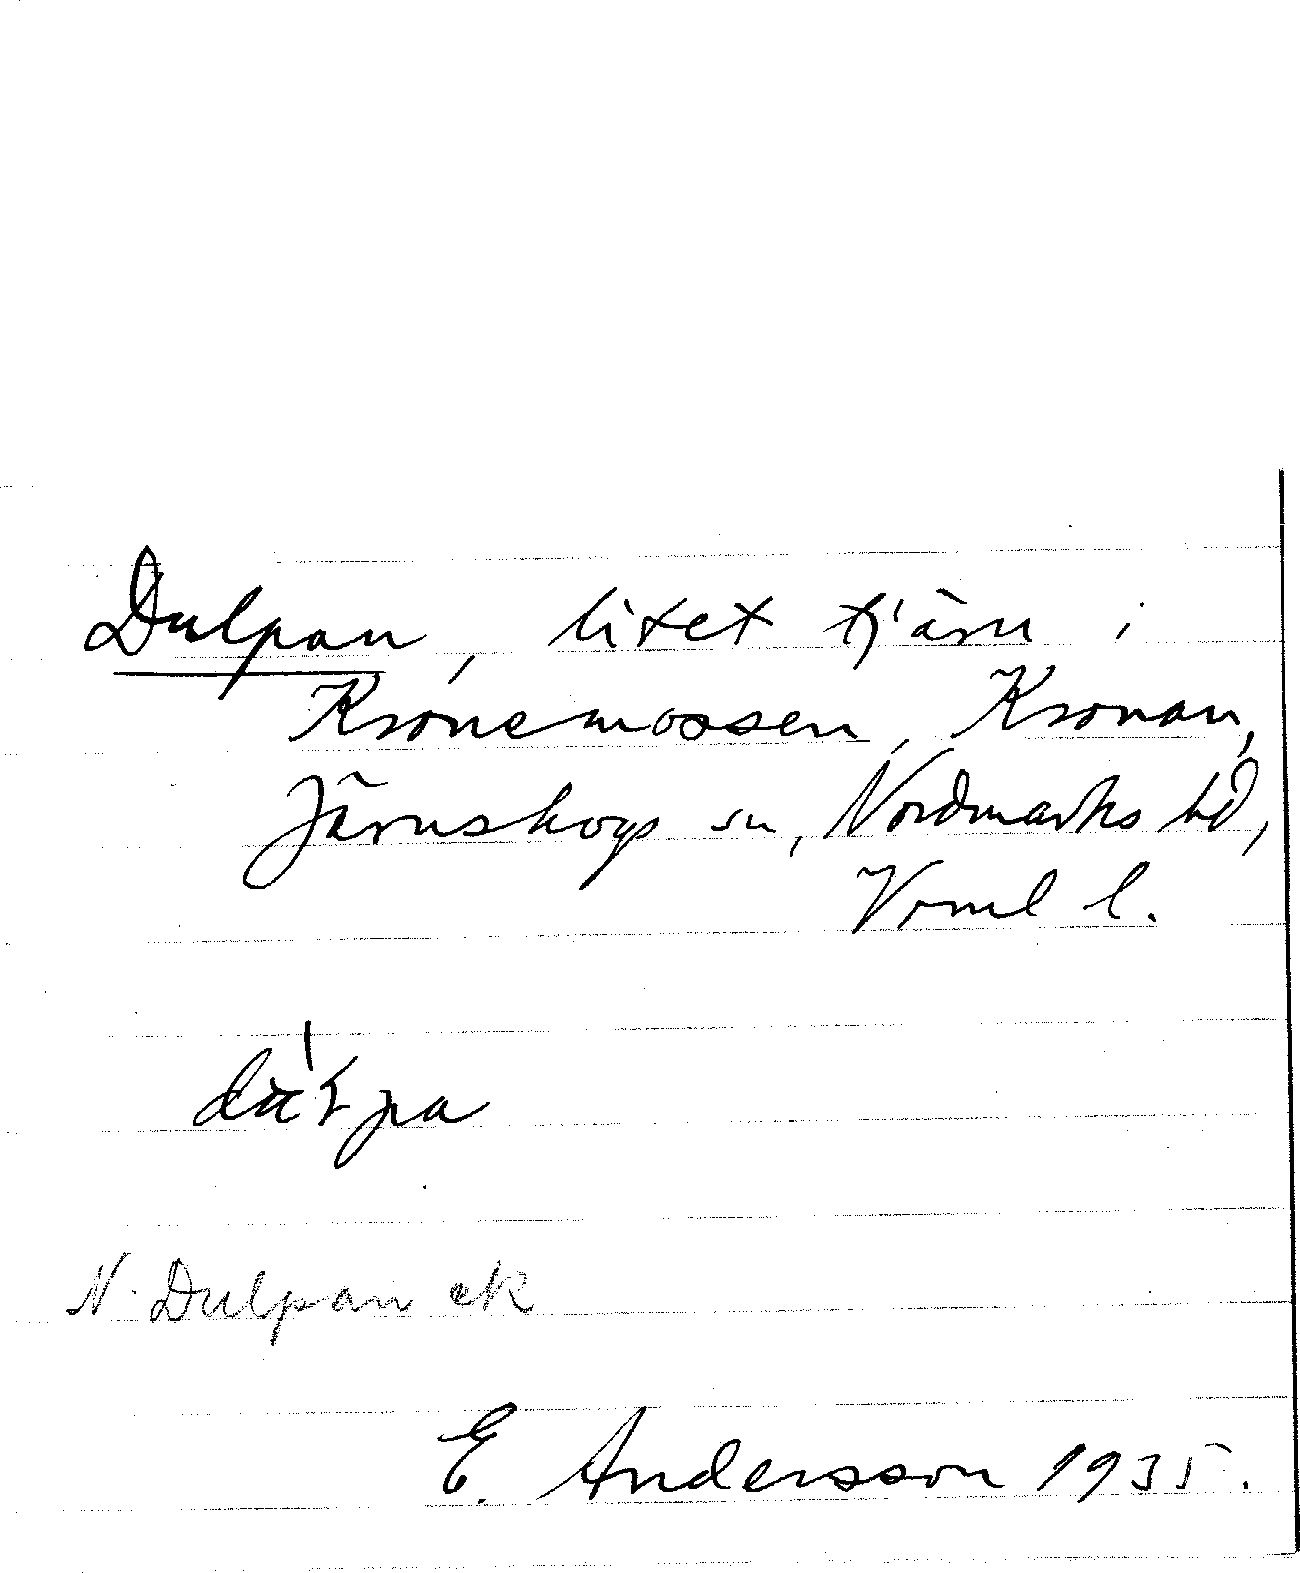 Dulpan, litet tjärn i
Kronemossen, Kronan,
Järnskogs sn, Nordmarks hd,
Vrml l.
N. Dulpan ek
E. Andersson 1935.